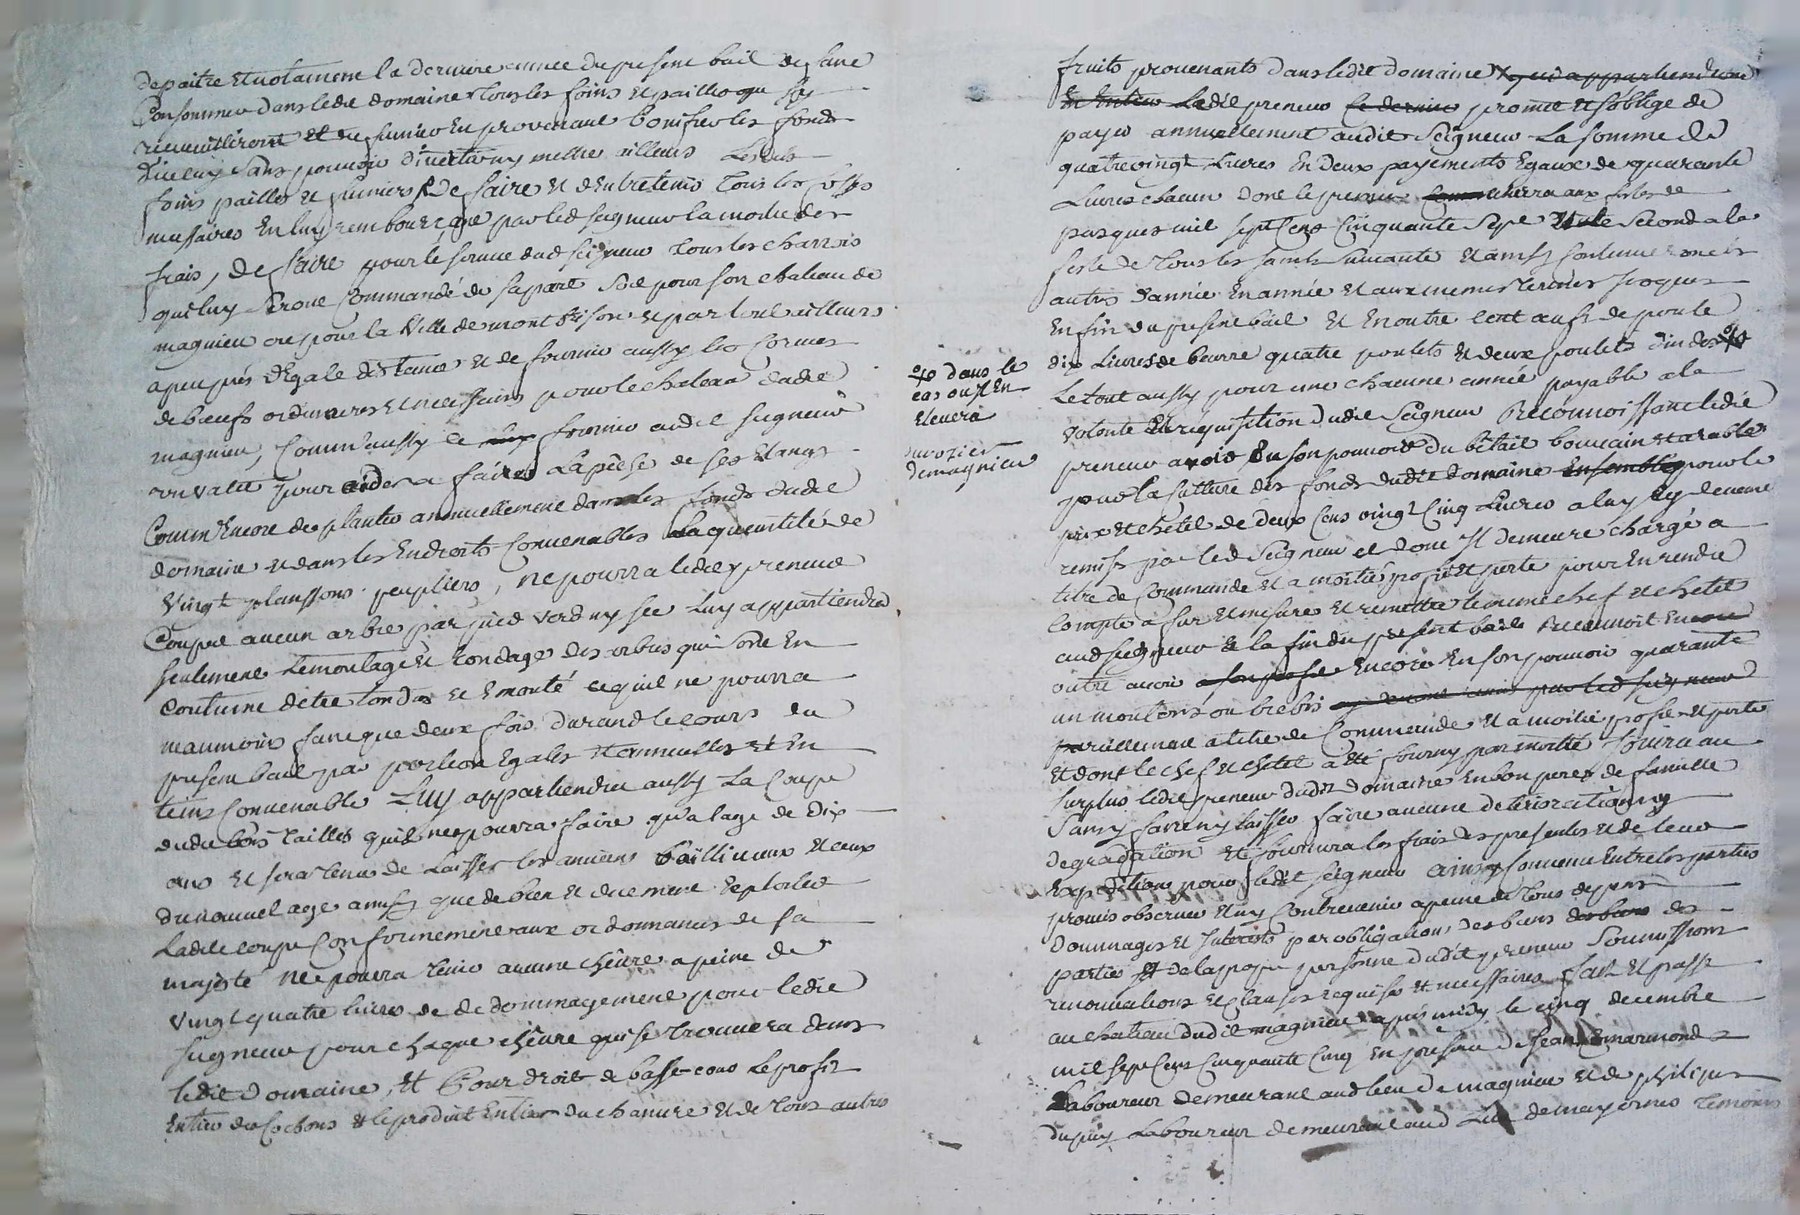 depaitre et notamment la derniere annee du present bail de faire
Consommer dans ledit domaine tous les foins et pailles qui s'y
recueilliront et du fumier en provenant bonifier les fonds
d'iceluy sans pouvoir divertir ny mettre ailleurs lesdits
foins pailles et fumiers, de faire et d'entretenir tous les fossés
necessaires en luy rembourçant par led seigneur la moitié des
frais, de faire pour le service dud seigneur tous les charrois
qui luy seront commandé de sa part soit pour son chateau de
magnieu ou pour la ville de montbrison et partout ailleurs
a peu prés d'égale distance et de fournir aussy les corvées
de bœufs ordinaires et necessaires pour le chateau dudit
magnieu, comm'aussy de fournir audit seigneur
un valet pour aider a faire la pêche de ses etangs
Comm'encore de planter annuellement dans les fonds dudit
domaine et dans les endroits convenables la quantité de
vingt planssons peupliers, ne pourra ledit preneur
Couper aucun arbre par pied verd ny sec luy appartiendra
seulement l'emontage et tondage des arbres qui sont en
coutume d'etre tondus et emonté ce qu'il ne pourra
neaumoins faire que deux fois durand le cours du
present bail par portion egales et annuelles et en
tems convenable luy appartiendra aussy la coupe
dudit bois taillés qu'il ne pourra faire qu'a l'age de dix
ans et sera tenu de laisser les anciens balliveaux et ceux
du nouvel age ainsy que de bien et duement exploiter
ladite coupe conformement aux ordonnances de sa
majesté ne pourra tenir aucune chêvre a peine de
vingt quatre livres de dedommagement pour ledit
seigneur pour chaque chêvre qui se trouvera dans
ledit domaine, et pour droit de basse cour le profit
entier des cochons et le produit entier du chanvre et de tous autres
fruits provenants dans ledit domaine qui appartiendront
en entier ledit preneur le dernier promet et s'oblige de
payer annuellement audit seigneur la somme de
quatrevingt livres en deux payements egaux de quarante
livres chacun dont le premier echerra aux festes de
pasques mil sept cens cinquante sept et le second a la
feste de tous les saints suivante et ainsy continuer
autres d'année en année et aux memes termes jusques
en fin du present bail et en outre cent œufs de poule
dix livres de beurre quatre poulets et deux poulets d'indes
le tout aussy pour une chacune année payable a la
volonté et requisition dudit seigneur Reconnoissant ledit
preneur avoir en son pouvoir du bêtail bouvain et arable
pour la culture des fonds dudit domaine ensembles pour le
prix et chetel de deux cens vingt cinq livres a luy cy devant
remis par led seigneur et dont il demeure chargé a
titre de commande et a moitié profit et perte pour en rendre
compte a fur et mesure et remettre le meme chef et chetel
aud seigneur a la fin du present bail reconnoit encore
outre avoir encore en son pouvoir quarante
un moutons ou brebis
pareillement a titre de commande et a moitié profit et perte
et dont le chef et chetel a été fourny par moitié jouira au
surplus ledit preneur dudit domaine en bon pere de famille
sans y faire ny laisser faire aucune deteriorationny
degradation et fournira les frais des presentes et de leur
expedition pour ledit seigneur ainsy convenu entre les parties
promis observer et n'y contrevenir a peine de tous depens
dommages et interets par obligation des biens des biens des
parties et de la propre personne dudit preneur soumissions
renonciations et clauses requises et necessaires fait et passé
au chateau dudit magnieu apres midy le cinq decembre
mil sept cens cinquante cinq en presence de Jean Emarmond
laboureur demeurant aud lieu de magnieu et de philipes
dupuy laboureur demeurant aud lieu de mayornes temoins
dans le
cas ou il en
elevera
durozier
demagnieu